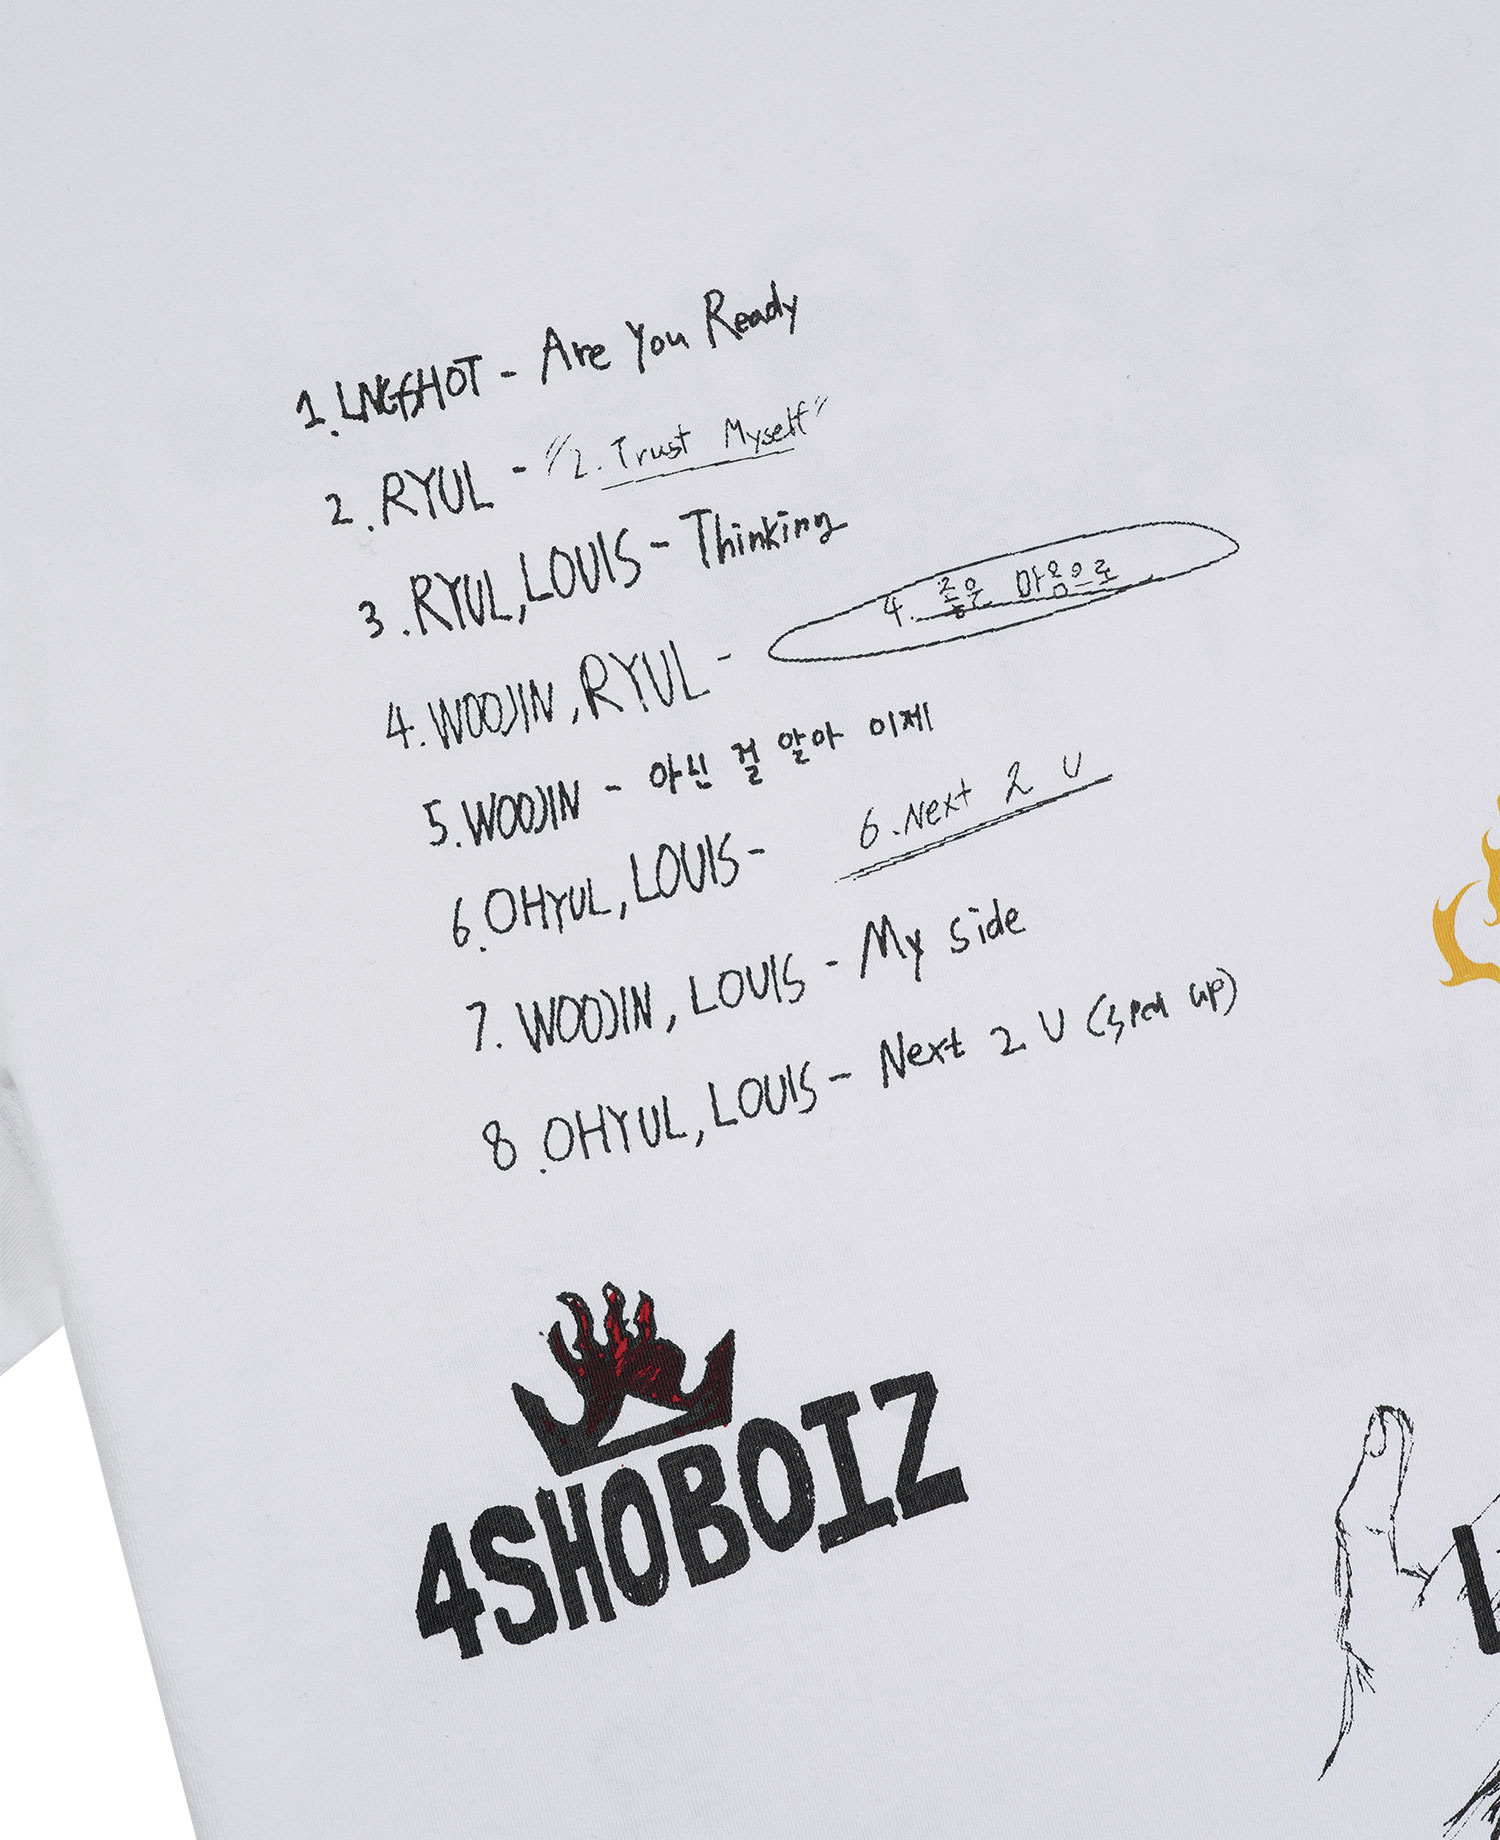 1. LNGSHOT - Are You Ready
2. RYUL - "2. Trust Myself"
3. RYUL, LOUIS - Thinking
4. WOOJIN, RYUL - 4. 좋은 마음으로
5. WOOJIN - 아닌 걸 알아 이제
6. OHYUL, LOUIS - 6. Next 2 U
7. WOOJIN, LOUIS - My side
8. OHYUL, LOUIS - Next 2 U (sped up)
4SHOBOIZ